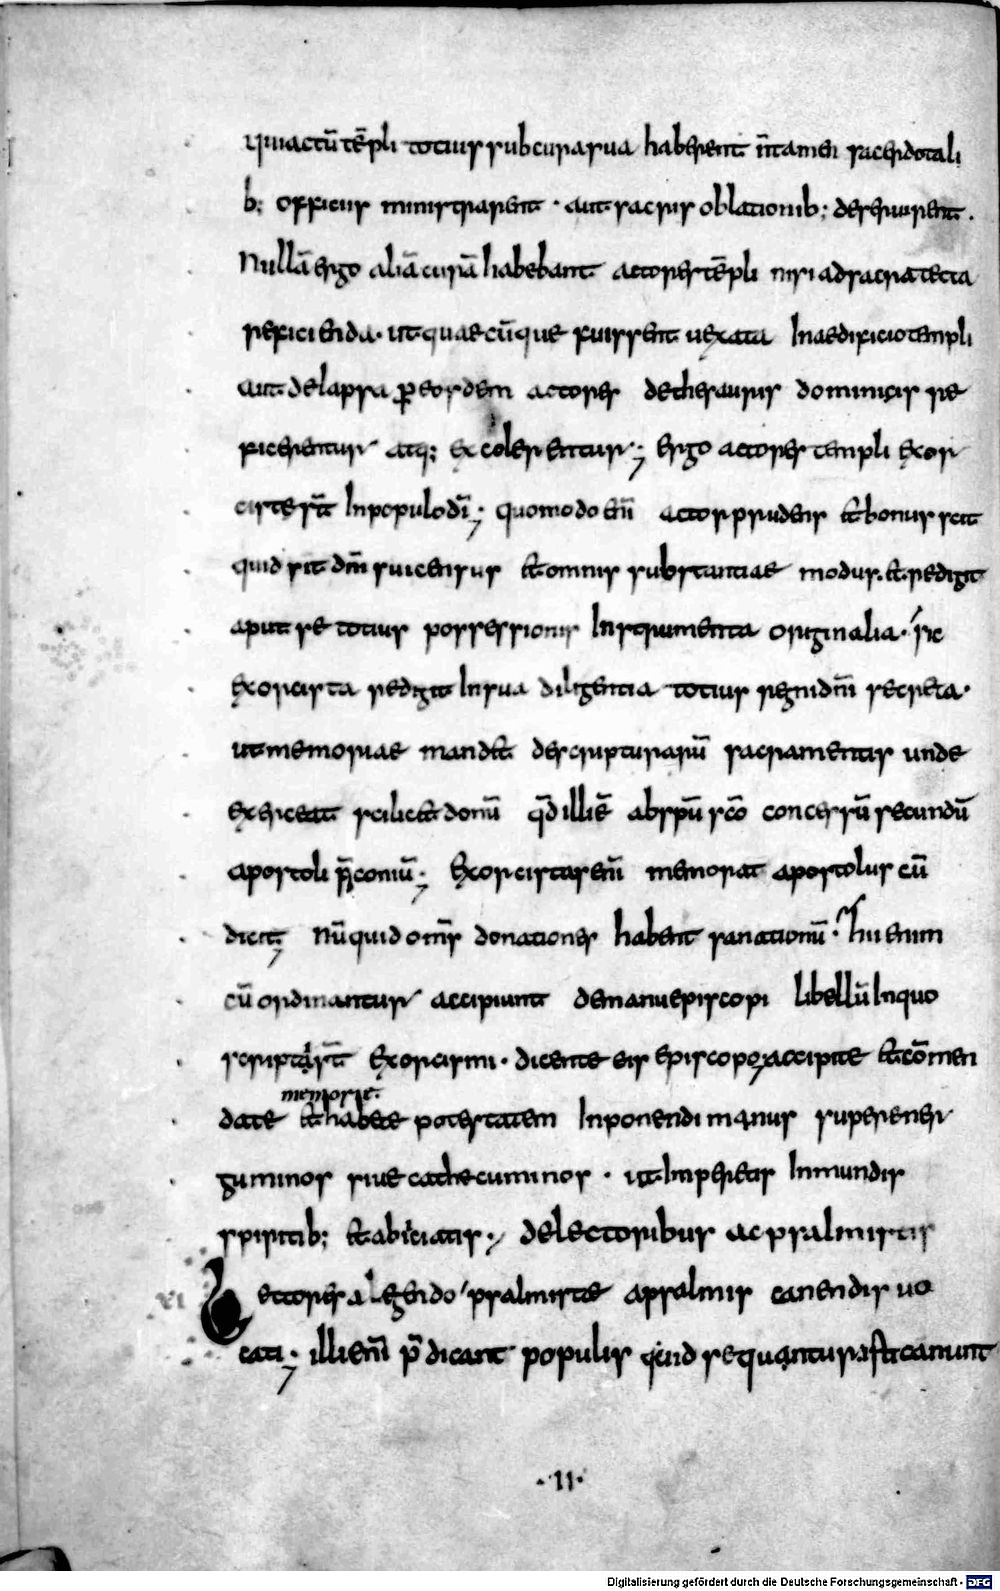 qui actū tēpli totius sub cura sua haberent n̄ tamen sacerdotali
b; officiis ministrarent · aut sacris oblationib; deseruirent.
Nullā ergo aliā curā habebant actores tēpli nisi ad sacra tecta
reficienda · ut quaecūque fuissent uexata In aedificio templi
aut delapsa ꝑ eosdem actores de thesauris dominicis re
ficerentur atq; excolerentur; ergo actores templi exor
cistę sīt In populo dī; quomodo enī actor prudens et bonus scit
quid sit dn̄i sui census et omnis substantiae modus. et redigit
aput se totius possessionis Instrumenta originalia · sic
exorcista redigit In sua diligentia totius regni dn̄i secreta ·
ut memoriae mandet de scripturarū sacramentis unde
exerceat scilicet donū qd̄ illi ē ab sp̄u sc̄o concessū secundū
apostoli p̄coniū; Exorcistas enī memorat apostolus cū
dicit; Nūquid om̄s donationes habent sanationū · hi enim
cū ordinantur accipiunt de manu episcopi libellū In quo
scripti sīt exorcismi · dicente eis episcopo; accipite et cōmen
memorie.
date et habete potestatem Inponendi manus super ener
guminos siue cathecuminos · ut Imperetis Inmundis
spiritib; et abiciatis; de lectoribus ac psalmistis
xi Lectores a legendo psalmistae a psalmis canendis uo
cati; illi enī p̄dicant populis quid sequantur isti canunt
· 11 ·
Digitalisierung gefördert durch die Deutsche Forschungsgemeinschaft - DFG